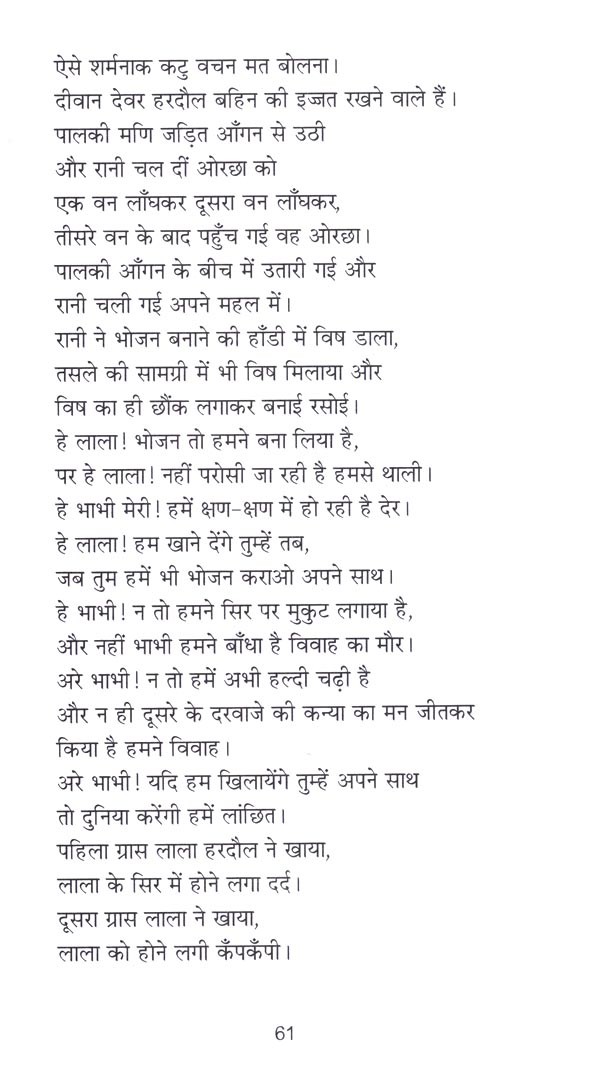 ऐसे शर्मनाक कटु वचन मत बोलना।
दीवान देवर हरदौल बहिन की इज्जत रखने वाले हैं।
पालकी मणि जड़ित आँगन से उठी
और रानी चल दीं ओरछा को
एक वन लाँघकर दूसरा वन लाँघकर,
तीसरे वन के बाद पहुँच गई वह ओरछा।
पालकी आँगन के बीच में उतारी गई और
रानी चली गई अपने महल में।
रानी ने भोजन बनाने की हाँडी में विष डाला,
तसले की सामग्री में भी विष मिलाया और
विष का ही छौंक लगाकर बनाई रसोई।
हे लाला! भोजन तो हमने बना लिया है,
पर हे लाला! नहीं परोसी जा रही है हमसे थाली।
हे भाभी मेरी! हमें क्षण-क्षण में हो रही है देर।
हे लाला! हम खाने देंगे तुम्हें तब,
जब तुम हमें भी भोजन कराओ अपने साथ।
हे भाभी! न तो हमने सिर पर मुकुट लगाया है,
और नहीं भाभी हमने बाँधा है विवाह का मौर।
अरे भाभी! न तो हमें अभी हल्दी चढ़ी है
और न ही दूसरे के दरवाजे की कन्या का मन जीतकर
किया है हमने विवाह।
अरे भाभी! यदि हम खिलायेंगे तुम्हें अपने साथ
तो दुनिया करेंगी हमें लांछित।
पहिला ग्रास लाला हरदौल ने खाया,
लाला के सिर में होने लगा दर्द।
दूसरा ग्रास लाला ने खाया,
लाला को होने लगी कँपकँपी।
61